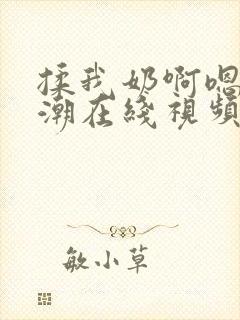 揉我奶啊嗯
潮在綫視頻
敏小草